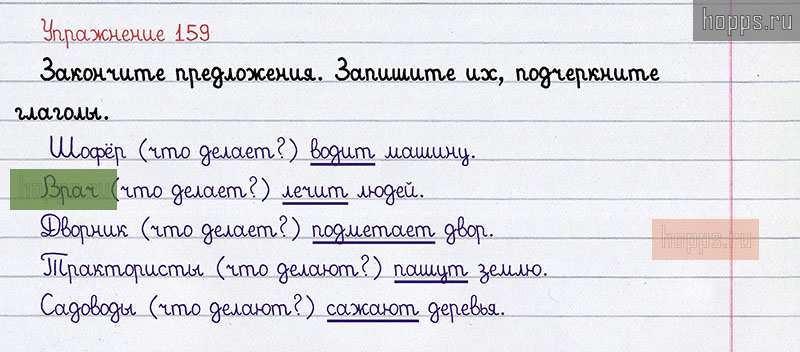 hopps.ru
Упражнение 159
Закончите предложения. Запишите их, подчеркните
глаголы.
Шофёр (что делает?) водит машину.
Врач (что делает?) лечит людей.
hopps.ru
Дворник (что делает?) подметает двор.
hopps.ru
Трактористы (что делают?) пашут землю.
Садоводы (что делают?) сажают деревья.